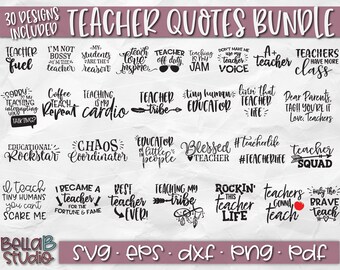 30 DESIGNS
INCLUDED
TEACHER QUOTES BUNDLE
TEACHER
fuel
I'M NOT
BOSSY
I'M THE
teacher
My
STUDENTS
ARE THE
reason!
Teach
love
inspire
TEACHER
off duty
teaching
IS MY
JAM
DON'T MAKE ME
use my
TEACHER
VOICE
A+
teacher
TEACHERS
HAVE MORE
CLASS
SORRY
IS MY
TEACHING
INTERRUPTING
YOUR
TALKING?
Coffee
teach
Repeat
TEACHING
is my
cardio
TEACHER
tribe
tiny human
EDUCATOR
Livin'
THAT
TEACHER
life
Dear Parents,
TAG! YOU'RE
IT
Love, Teachers
EDUCATIONAL
Rockstar
CHAOS
Coordinator
EDUCATOR
of little
people
Blessed
TEACHER
#teacherlife
#TEACHERLIFE
TEACHER
SQUAD
I teach
TINY HUMANS
you can't
SCARE ME
I BECAME A
Teacher
FOR THE
FORTUNE & FAME
BEST
TEACHER
EVER!
TEACHING
MY
tribe
ROCKIN'
THIS
teacher
LIFE
teachers
GONNA
teach
only the
BRAVE
teach
BELLA B
Studio
SVG • EPS • DXF • PNG • PDF